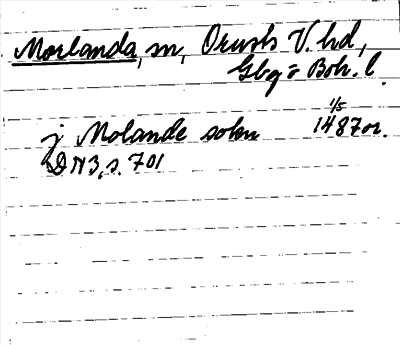 Morlanda, sn, Orusts V. hd,
Gbg o Boh. l.
j Molande sokn 1/5 1487 or.
DN 3, s. 701